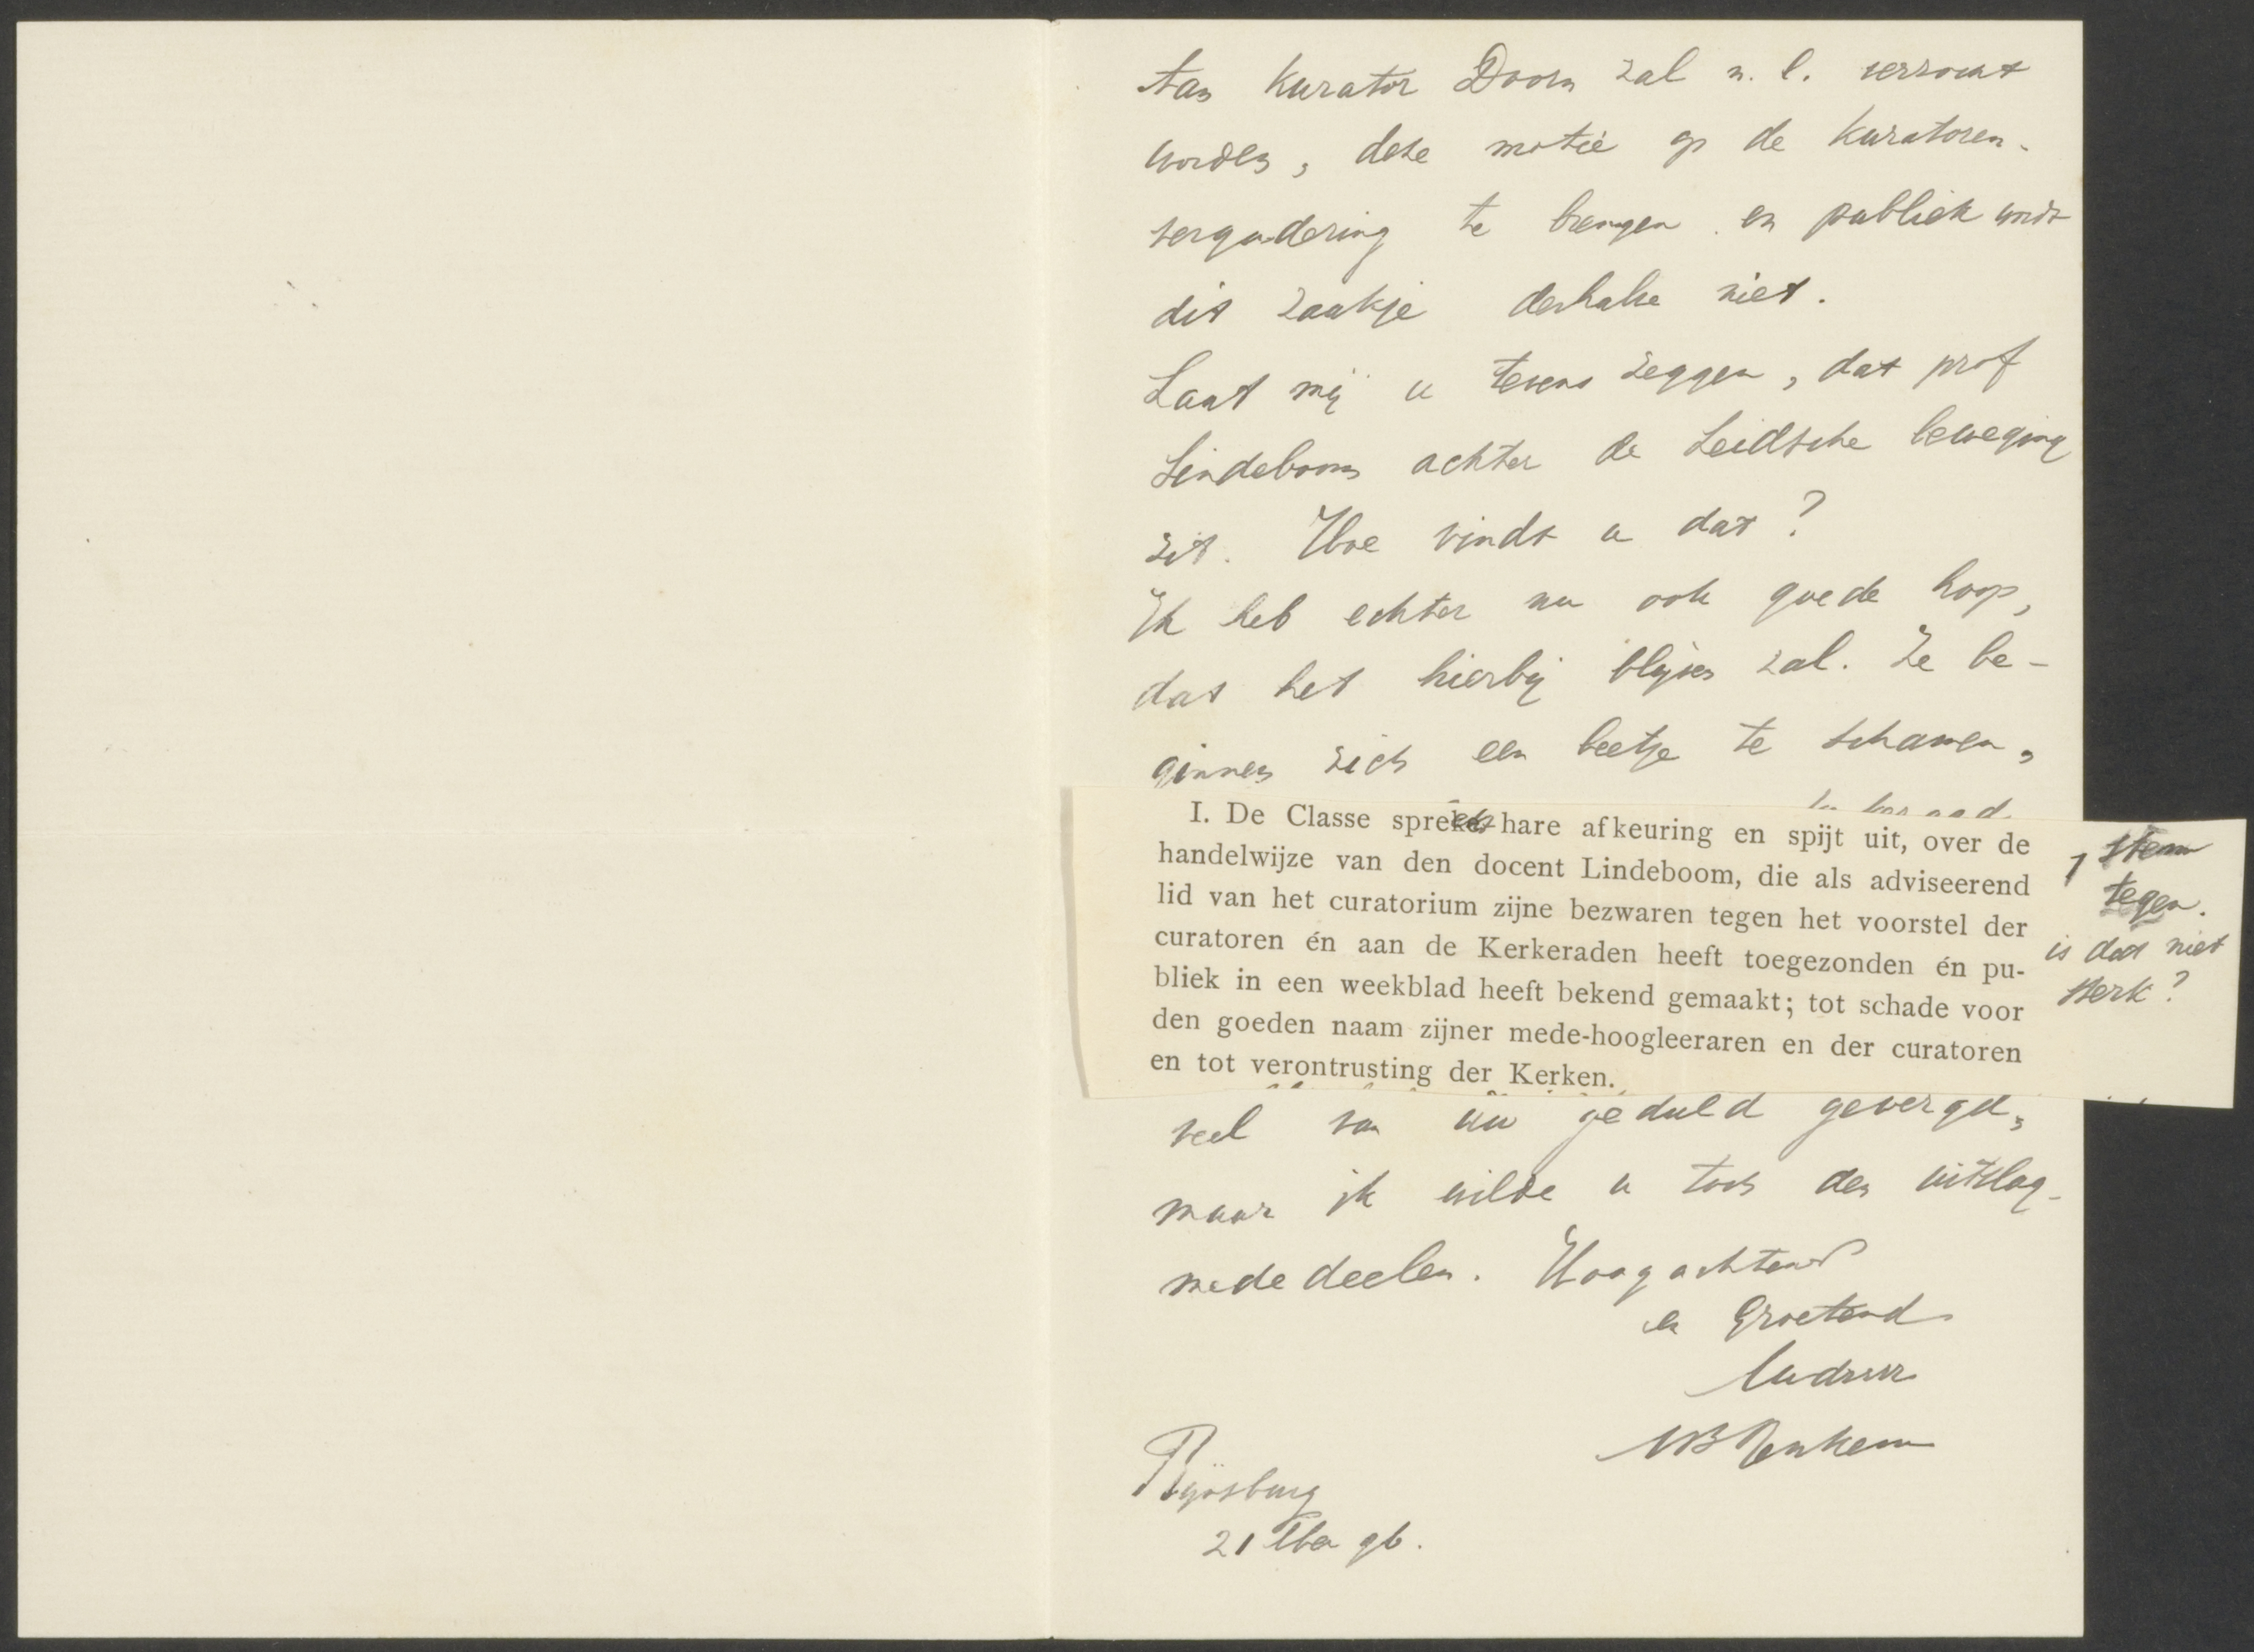 Aan Kurator Doorn zal n. l. verzocht
worden, deze motie op de Kuratoren-
vergadering te brengen en publiek wordt
dit zaakje derhalve niet.
Laat mij u tevens zeggen, dat prof
Lindeboom achter de Leidsche beweging
zit. Hoe vindt u dat?
Ik heb echter nu ook goede hoop,
dat het hierbij blijven zal. Ze be-
ginnen zich een beetje te schamen,
I. De Classe spreke hare afkeuring en spijt uit, over de
handelwijze van den docent Lindeboom, die als adviseerend
lid van het curatorium zijne bezwaren tegen het voorstel der
curatoren én aan de Kerkeraden heeft toegezonden én pu-
bliek in een weekblad heeft bekend gemaakt; tot schade voor
den goeden naam zijner mede-hoogleeraren en der curatoren
en tot verontrusting der Kerken.
1 stem
tegen.
is dat niet
sterk?
veel van uw geduld gevergd,
maar ik wilde u toch den uitslag
mededeelen. Hoogachtend
en Groetend
Uw dr
Rijnsburg
21